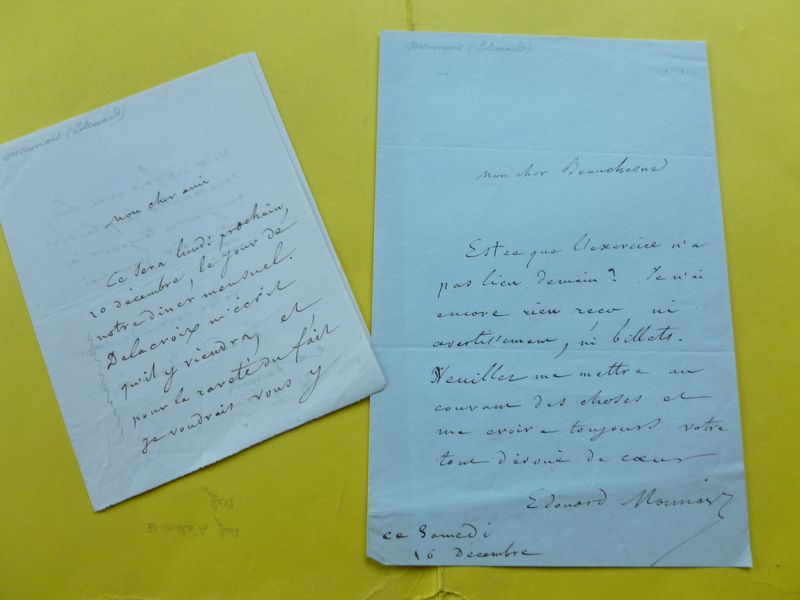 Monnais (Edouard)
Mon cher ami
Ce sera lundi prochain,
10 décembre, le jour de
notre diner mensuel.
Delacroix m'écrit
qu'il y viendra, et
pour la rareté du fait
je voudrais vous y
Monnais (Edouard)
Mon cher Beauchesne
Est ce que l'exercice n'a
pas lieu demain? Je n'ai
encore rien reçu, ni
avertissement, ni billets.
Veuillez me mettre au
courant des choses et
me croire toujours votre
tout dévoué de cœur
Edouard Monnais
ce Samedi
16 Décembre